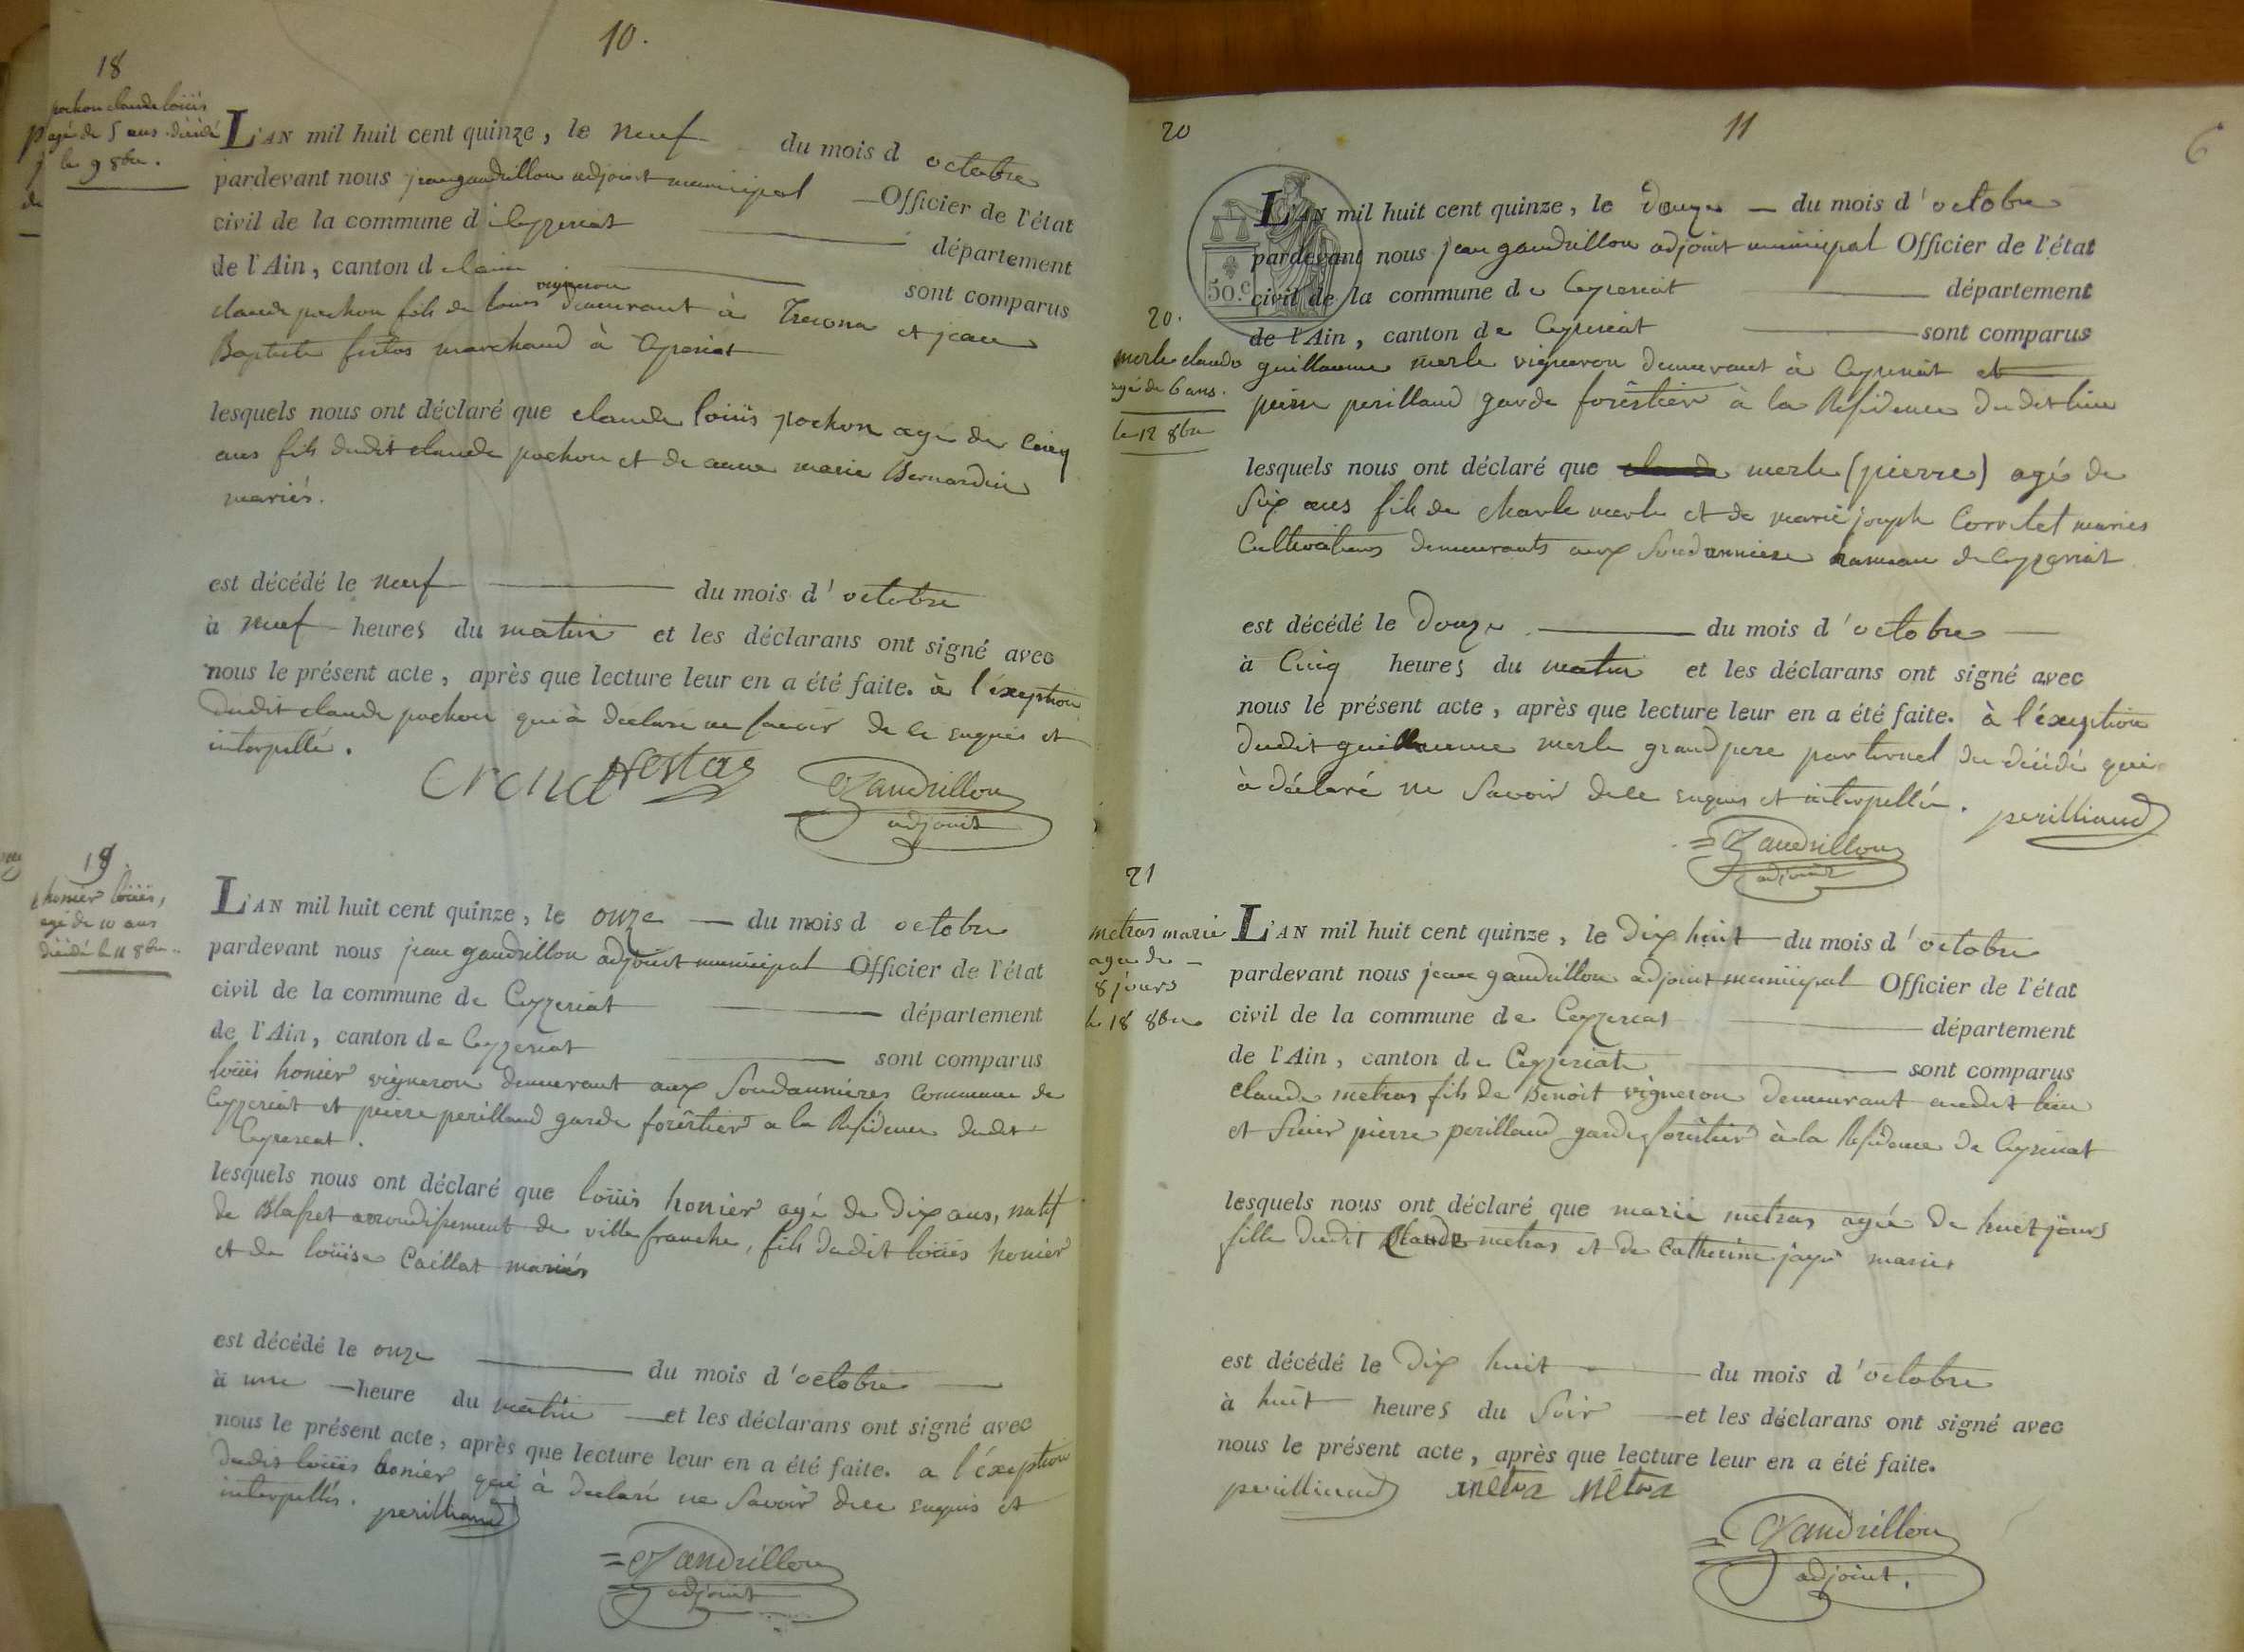 10.
18
pochon claude loüis
agé de 5 ans décédé
le 9 8bre.
L'AN mil huit cent quinze, le neuf du mois d octobre
pardevant nous jean gaudrillon adjoint municipal Officier de l'état
civil de la commune d Ceyzeriat département
de l'Ain, canton d sont comparus
vigneron
claude pochon fils de louis demeurant à et jean
Baptiste marchand à Ceyzeriat
lesquels nous ont déclaré que claude loüis pochon agé de cinq
ans fils dudit claude pochon et de anne marie Bernardin
mariés.
est décédé le neuf du mois d'octobre
à neuf heures du matin et les déclarans ont signé avec
nous le présent acte, après que lecture leur en a été faite. à l'éxeption
dudit claude pochon qui à déclaré ne savoir de ce enquis et
interpellé.
Gaudrillon
adjoint
19
honier loüis,
agé de 10 ans
décédé le 11 8bre.
L'AN mil huit cent quinze, le onze du mois d octobre
pardevant nous jean gaudrillon adjoint municipal Officier de l'état
civil de la commune de Ceyzeriat département
de l'Ain, canton de Ceyzeriat sont comparus
loüis honier vigneron demeurant aux Soudannières commune de
Ceyzeriat et pierre perilland garde forêstier a la Residence dudit
Ceyzeriat.
lesquels nous ont déclaré que loüis honier agé de dix ans, natif
de Blasset arrondissement de ville franche, fils dudit loüis honier
et de loüise Caillat mariés
est décédé le onze du mois d'octobre
à une heure du matin et les déclarans ont signé avec
nous le présent acte, après que lecture leur en a été faite. a l'éxeption
dudit loüis honier qui à déclaré ne savoir dece enquis et
interpellés. perilliand
Gaudrillon
adjoint
11
6
20
50.c
L'AN mil huit cent quinze, le douze du mois d'octobre
pardevant nous jean gaudrillon adjoint municipal Officier de l'état
civil de la commune de Ceyzeriat département
de l'Ain, canton de Ceyzeriat sont comparus
20.
merle claude
agé de 6 ans.
le 12 8bre
guillaume merle vigneron demeurant à Ceyzeriat et
pierre perilland garde forêstier à la Residence dudit lieu
lesquels nous ont déclaré que claude merle (pierre) agé de
six ans fils de charle merle et de marie joseph Corrtet mariés
Cultivateurs demeurants aux Soudannière hameau de Ceyzeriat
est décédé le douze du mois d'octobre
à Cinq heures du matin et les déclarans ont signé avec
nous le présent acte, après que lecture leur en a été faite. à l'éxeption
dudit guillaume merle grand pere parternel du décédé qui
à déclaré ne savoir dece enquis et interpellé. perilliand
Gaudrillon
adjoint
21
metras marie
agée de
8 jours
le 18 8bre
L'AN mil huit cent quinze, le dix huit du mois d'octobre
pardevant nous jean gaudrillon adjoint municipal Officier de l'état
civil de la commune de Ceyzeriat département
de l'Ain, canton de Ceyzeriat sont comparus
claude metras fils de Benoit vigneron demeurant audit lieu
et Sieur pierre perilland garde forêstier à la Residence de Ceyzeriat
lesquels nous ont déclaré que marie metras agée de huit jours
fille dudit Claude metras et de Catherine jayr mariés
est décédé le dix huit du mois d'octobre
à huit heures du soir et les déclarans ont signé avec
nous le présent acte, après que lecture leur en a été faite.
perilliand métra métra
Gaudrillon
adjoint.